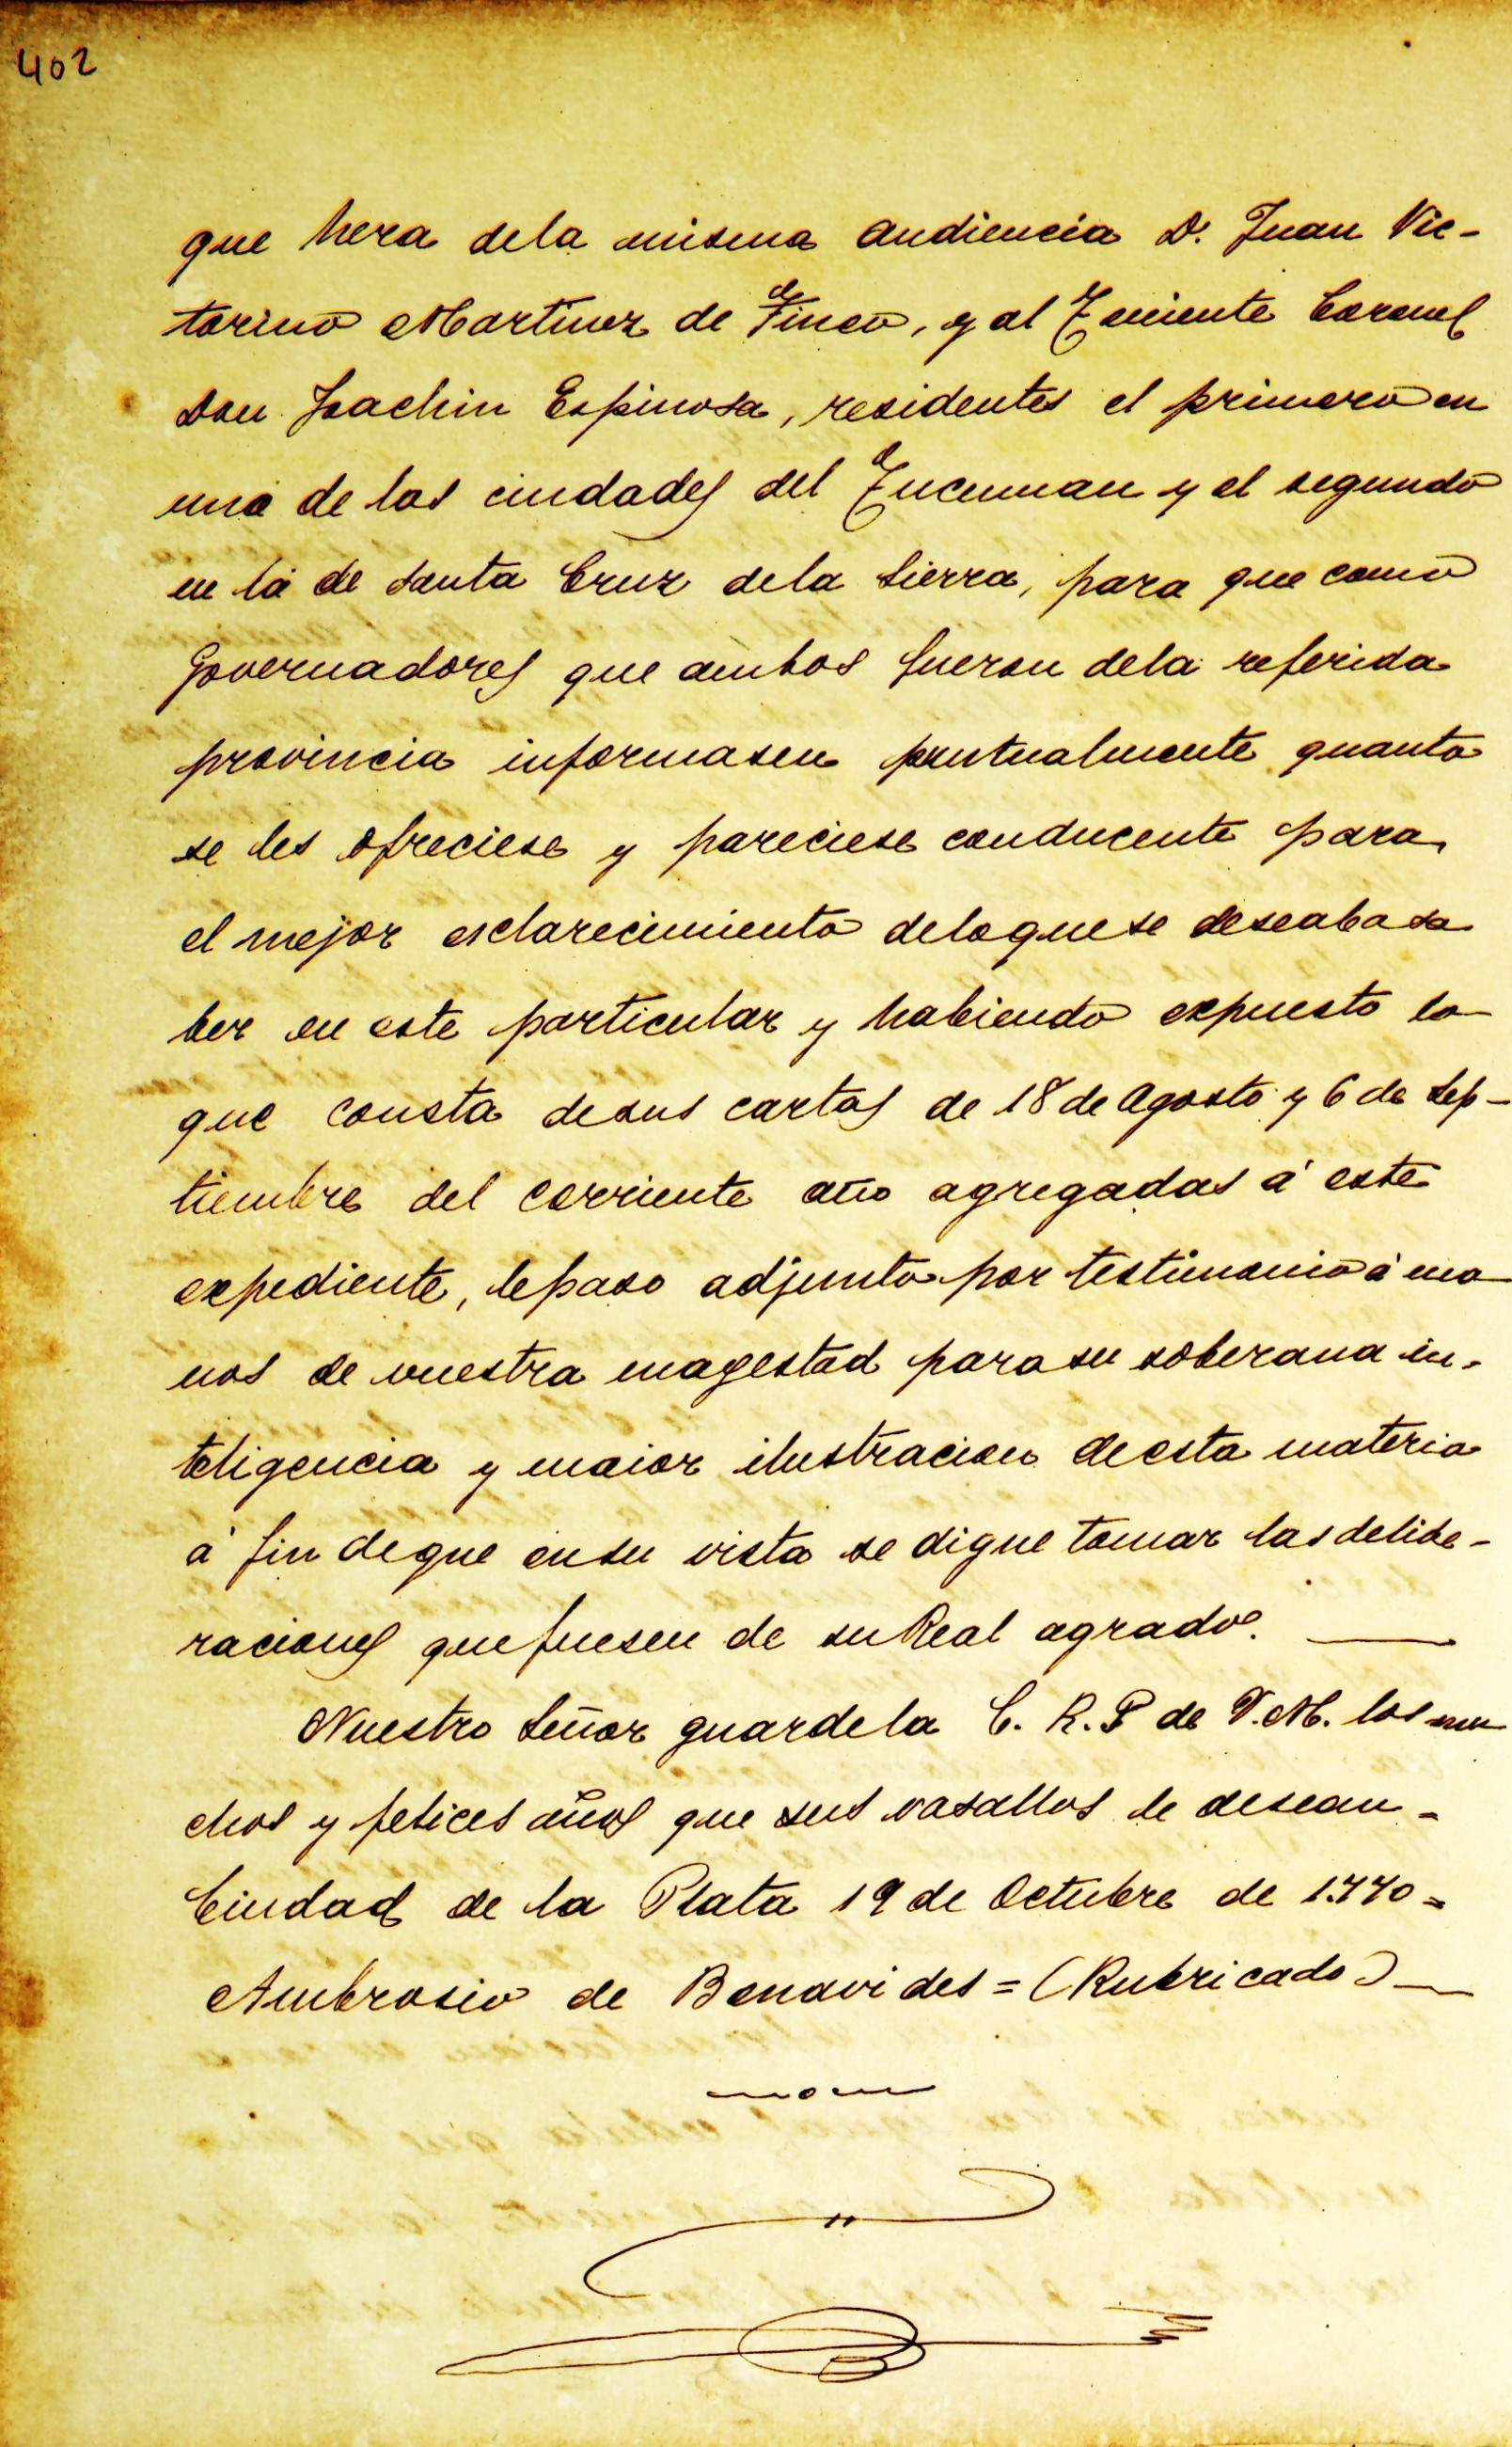 402
que hera dela misma audiencia D. Juan Vic-
torino Martinez de Tineo, y al Teniente Coronel
Don Joachin Espinosa, residentes el primero en
una de las ciudades del Tucuman y el segundo
en la de Santa Cruz dela Sierra, para que como
Governadores que ambos fueron dela referida
provincia informasen puntualmente quanto
se les ofreciese y pareciese conducente para
el mejor esclarecimiento deloquese deseaba sa
ber en este particular y habiendo expuesto lo
que consta desus cartas de 18 de Agosto y 6 de Sep-
tiembre del corriente año agregadas á este
expediente, lepaso adjunto por testimonio á ma
nos de vuestra magestad parasu soberana in-
teligencia y maior ilustracion deesta materia
á fin deque ensu vista se digne tomar las delibe-
raciones quefuesen de suReal agrado.
Nuestro Señor guardela C. R. P de V. M. los mu
chos y felices años que sus vasallos le desean =
Ciudad de la Plata 19 de Octubre de 1.770 =
Ambrosio de Benavides = (Rubricado)